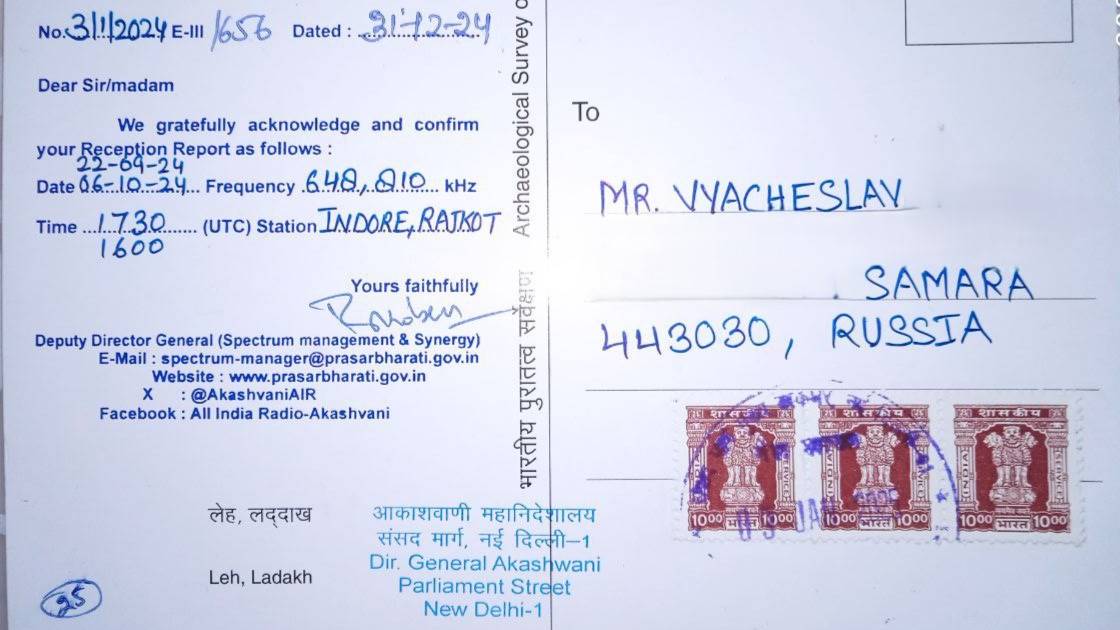 No. 3/1/2024 E-III /656 Dated : 31-12-24
Dear Sir/madam
We gratefully acknowledge and confirm
your Reception Report as follows :
22-09-24
Date 06-10-24 Frequency 648, 810 kHz
Time 1730 (UTC) Station INDORE, RAJKOT
1600
Yours faithfully
Deputy Director General (Spectrum management & Synergy)
E-Mail : spectrum-manager@prasarbharati.gov.in
Website : www.prasarbharati.gov.in
X : @AkashvaniAIR
Facebook : All India Radio-Akashvani
लेह, लद्दाख
Leh, Ladakh
25
आकाशवाणी महानिदेशालय
संसद मार्ग, नई दिल्ली–1
Dir. General Akashwani
Parliament Street
New Delhi-1
भारतीय पुरातत्व सर्वेक्षण Archaeological Survey
To
MR. VYACHESLAV
SAMARA
443030, RUSSIA
शासकीय शासकीय शासकीय
INDIA SERVICE
1000 भारत 1000 1000 भारत 1000 1000 भारत 1000
JAN